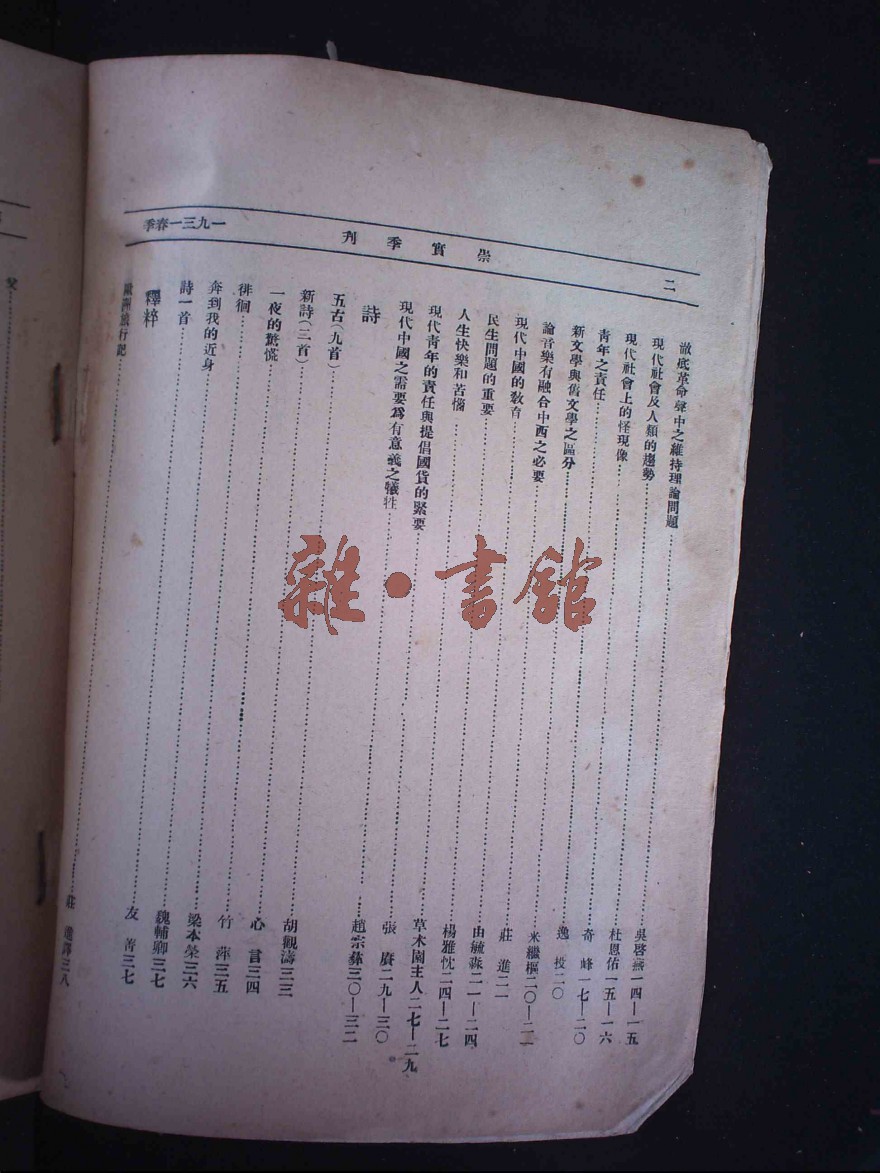 二
崇實季刊
一九三一春季
澈底革命聲中之維持理論問題……吳啓燕一四—一五
現代社會及人類的趨勢……杜恩佑一五—一六
現代社會上的怪現像……奇峰一七—二〇
青年之責任……逸投二〇
新文學與舊文學之區分……米繼樞二〇—二一
論音樂有融合中西之必要……莊進二一
現代中國的教育……由毓淼二一—二四
民生問題的重要……楊雅忱二四—二七
人生快樂和苦惱……草木園主人二七—二九
現代青年的責任與提倡國貨的緊要……張賡二九—三〇
現代中國之需要爲有意義之犧牲……趙宗彝三〇—三二
詩
五古(九首)……胡觀濤三三
新詩(三首)……心言三四
一夜的驚慌……竹萍三五
徘徊……梁本榮三六
奔到我的近身……魏輔卿三七
詩一首……友善三七
釋粹
歐洲旅行記……莊進譯三八
父
雜·書館